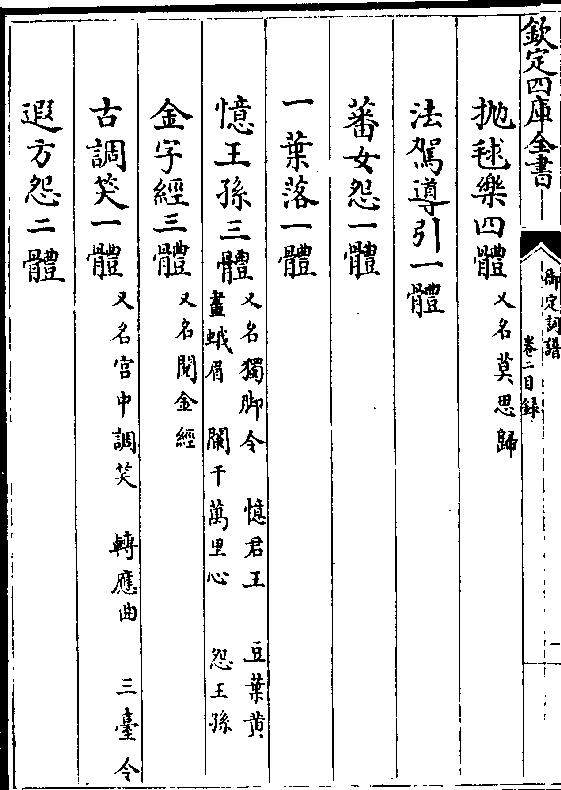 欽定四庫全書
御定詞譜
卷二目錄
一
拋毬樂四體 又名莫思歸
法駕導引一體
蕃女怨一體
一葉落一體
憶王孫三體 又名獨脚令 憶君王 豆葉黄
畫蛾眉 闌干萬里心 怨王孫
金字經三體 又名閲金經
古調笑一體 又名宫中調笑 轉應曲 三臺令
遐方怨二體